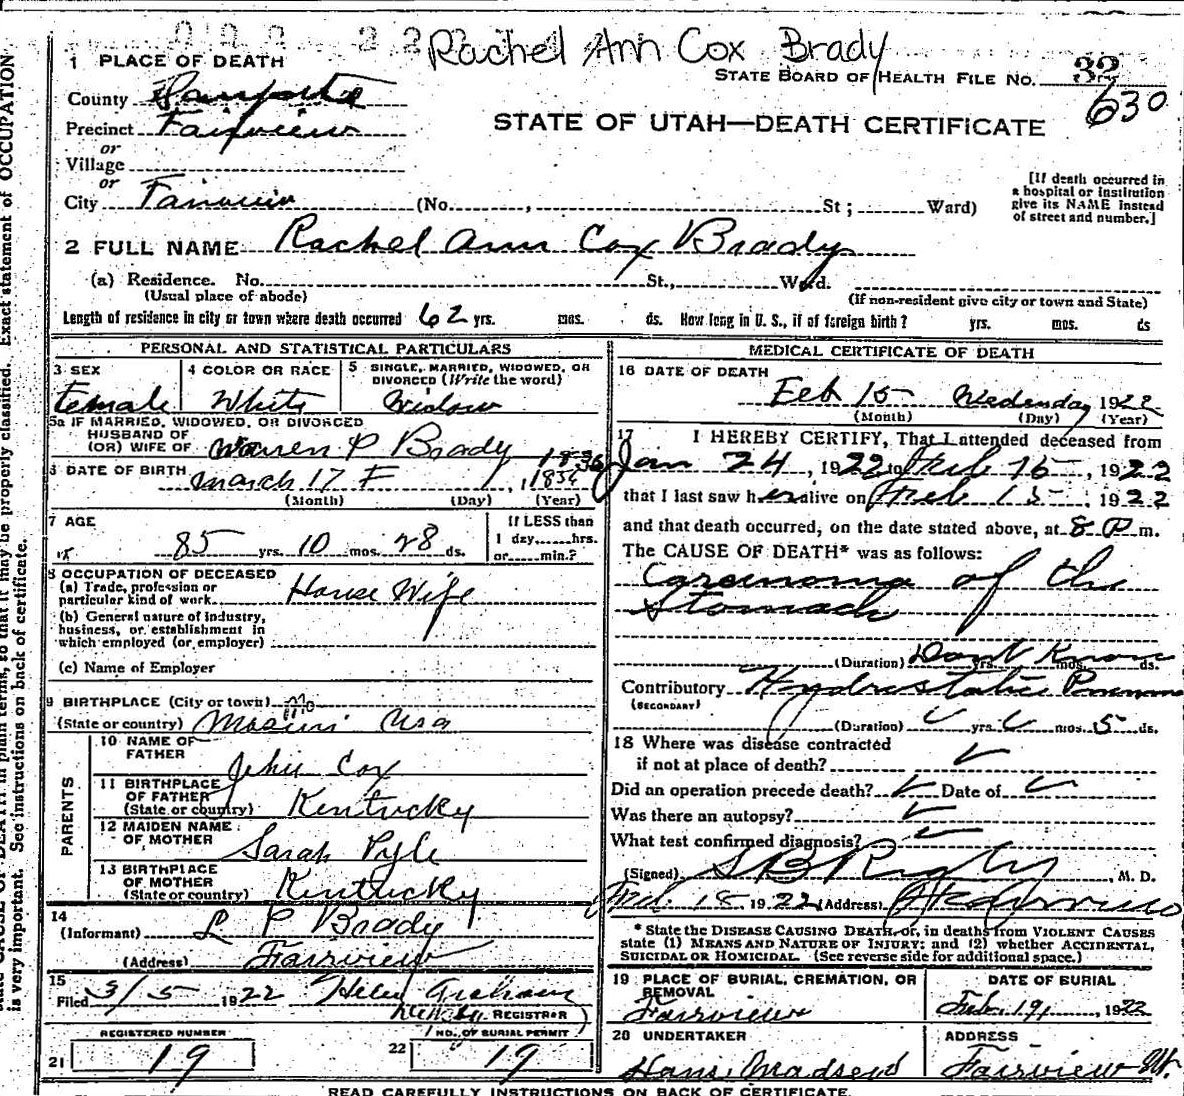 Rachel Ann Cox Brady
STATE BOARD OF HEALTH FILE NO. 32
630
STATE OF UTAH—DEATH CERTIFICATE
1 PLACE OF DEATH
County Sanpete
Precinct Fairview
or
Village
or
City Fairview (No. , St; Ward)
[If death occurred in
a hospital or institution
give its NAME instead
of street and number.]
2 FULL NAME Rachel Ann Cox Brady
(a) Residence. No. St., Ward.
(Usual place of abode) (If non-resident give city or town and State)
Length of residence in city or town where death occurred 62 yrs. mos. ds. How long in U. S., if of foreign birth? yrs. mos. ds
PERSONAL AND STATISTICAL PARTICULARS
3 SEX 4 COLOR OR RACE 5 SINGLE, MARRIED, WIDOWED, OR
DIVORCED (Write the word)
Female White Widow
5a IF MARRIED, WIDOWED, OR DIVORCED
HUSBAND OF
(OR) WIFE OF Warren P Brady
1836
6 DATE OF BIRTH March 17 , 1836
(Month) (Day) (Year)
7 AGE If LESS than
1 day, hrs.
85 yrs. 10 mos. 28 ds. or min.?
8 OCCUPATION OF DECEASED
(a) Trade, profession or
particular kind of work House Wife
(b) General nature of industry,
business, or establishment in
which employed (or employer)
(c) Name of Employer
9 BIRTHPLACE (City or town) Mo
(State or country) Usa
PARENTS
10 NAME OF
FATHER Jehu Cox
11 BIRTHPLACE
OF FATHER
(State or country) Kentucky
12 MAIDEN NAME
OF MOTHER Sarah Pyle
13 BIRTHPLACE
OF MOTHER
(State or country) Kentucky
14
(Informant) L P Brady
(Address) Fairview
15
Filed 3/5 1922 Helen Graham
REGISTRAR
REGISTERED NUMBER NO. OF BURIAL PERMIT
21 19 22 19
MEDICAL CERTIFICATE OF DEATH
16 DATE OF DEATH
Feb 15 Wednesday 1922
(Month) (Day) (Year)
17 I HEREBY CERTIFY, That I attended deceased from
Jan 24, 1922 to Feb 15, 1922
that I last saw her alive on Feb 15 1922
and that death occurred, on the date stated above, at 8 P m.
The CAUSE OF DEATH* was as follows:
Carcinoma of the
Stomach
(Duration) Dont Know yrs. mos. ds.
Contributory Hydrostatic
(SECONDARY)
(Duration) yrs. mos. 5 ds.
18 Where was disease contracted
if not at place of death?
Did an operation precede death? Date of
Was there an autopsy?
What test confirmed diagnosis?
(Signed) S B Rigby, M. D.
1922 (Address) Fairview
* State the DISEASE CAUSING DEATH, or, in deaths from VIOLENT CAUSES
state (1) MEANS AND NATURE OF INJURY; and (2) whether ACCIDENTAL,
SUICIDAL OR HOMICIDAL. (See reverse side for additional space.)
19 PLACE OF BURIAL, CREMATION, OR
REMOVAL
Fairview
DATE OF BURIAL
Feb. 19, 1922
20 UNDERTAKER ADDRESS
Hans Madsen Fairview Ut.
READ CAREFULLY INSTRUCTIONS ON BACK OF CERTIFICATE.
in plain terms, so that it may be properly classified. Exact statement of OCCUPATION
is very important. See instructions on back of certificate.